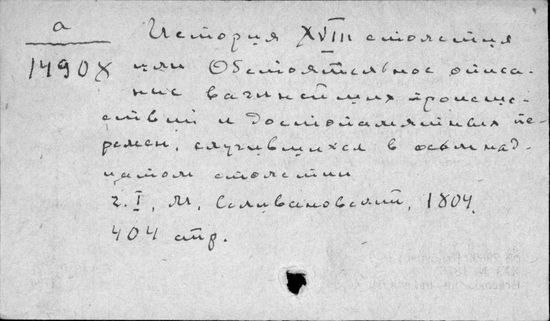 а
История XVIII столетия
1490X или Обстоятельное описа-
ние важнейших происше-
ствий и достопамятных пе-
ремен, случившихся в осьмнад-
цатом столетии
ч. I, М, Селивановский, 1804,
404 стр.